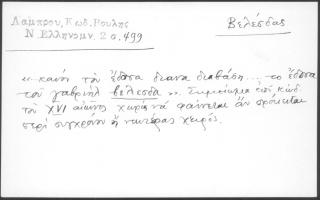 Λαμπρου, Κωδ. Βουλης
Ν Ελληνομν. 2 σ. 499
Βελέσδας
«... κανή τὸν ἔδοσα διανα διαβάση ... τὸ ἔδοσα
τοῦ γαβριὴλ βελεσδα ». Σημείωμα ἐπὶ κώδ.
τοῦ XVI αἰῶνος χωρὶς νὰ φαίνεται ἂν πρόκειται
περὶ συγχρόνου ἢ νεωτέρας χειρός.